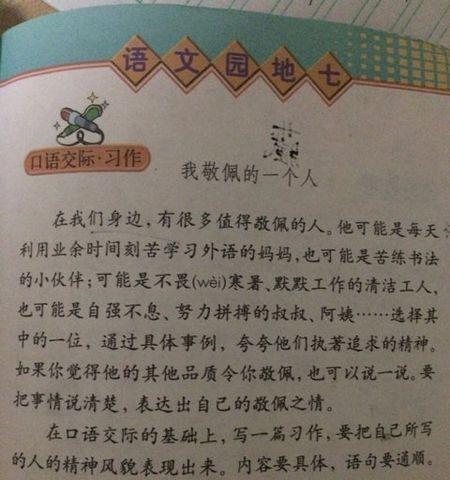 语文园地七
口语交际·习作
我敬佩的一个人
在我们身边，有很多值得敬佩的人。他可能是每天
利用业余时间刻苦学习外语的妈妈，也可能是苦练书法
的小伙伴；可能是不畏(wèi)寒暑、默默工作的清洁工人，
也可能是自强不息、努力拼搏的叔叔、阿姨……选择其
中的一位，通过具体事例，夸夸他们执著追求的精神。
如果你觉得他的其他品质令你敬佩，也可以说一说。要
把事情说清楚，表达出自己的敬佩之情。
在口语交际的基础上，写一篇习作，要把自己所写
的人的精神风貌表现出来。内容要具体，语句要通顺。